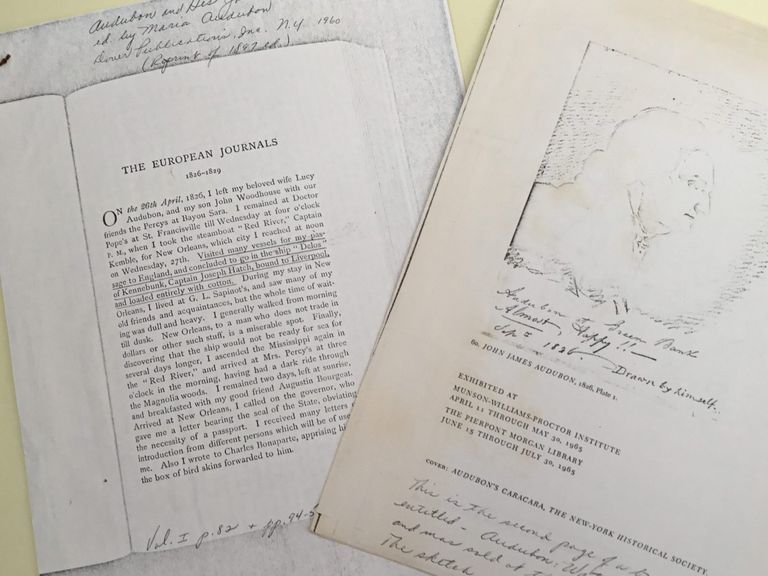 Audubon and His
ed. by Maria Audubon
Dover Publications, Inc. N.Y. 1960
(Reprint of 1897 ed.)
THE EUROPEAN JOURNALS
1826-1829
ON the 26th April, 1826, I left my beloved wife Lucy
Audubon, and my son John Woodhouse with our
friends the Percys at Bayou Sara. I remained at Doctor
Pope's at St. Francisville till Wednesday at four o'clock
P. M., when I took the steamboat "Red River," Captain
Kemble, for New Orleans, which city I reached at noon
on Wednesday, 27th. Visited many vessels for my pas-
sage to England, and concluded to go in the ship "Delos"
of Kennebunk, Captain Joseph Hatch, bound to Liverpool,
and loaded entirely with cotton. During my stay in New
Orleans, I lived at G. L. Sapinot's, and saw many of my
old friends and acquaintances, but the whole time of wait-
ing was dull and heavy. I generally walked from morning
till dusk. New Orleans, to a man who does not trade in
dollars or other such stuff, is a miserable spot. Finally,
discovering that the ship would not be ready for sea for
several days longer, I ascended the Mississippi again in
the "Red River," and arrived at Mrs. Percy's at three
o'clock in the morning, having had a dark ride through
the Magnolia woods. I remained two days, left at sunrise,
and breakfasted with my good friend Augustin Bourgeat.
Arrived at New Orleans, I called on the governor, who
gave me a letter bearing the seal of the State, obviating
the necessity of a passport. I received many letters
introduction from different persons which will be of use
me. Also I wrote to Charles Bonaparte, apprising him
the box of bird skins forwarded to him.
Vol. I p. 82 + pp. 94-
Audubon at Green Bank
Almost, Happy!!—
Sep. 1826. — Drawn by himself.
60. JOHN JAMES AUDUBON, 1826, Plate 1.
EXHIBITED AT
MUNSON-WILLIAMS-PROCTOR INSTITUTE
APRIL 11 THROUGH MAY 30, 1965
THE PIERPONT MORGAN LIBRARY
JUNE 15 THROUGH JULY 30, 1965
COVER: AUDUBON'S CARACARA, THE NEW-YORK HISTORICAL SOCIETY
This is the second page of a
entitled - Audubon:
and was sold at
The sketch